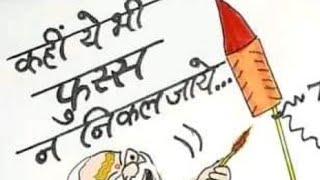 कहीं ये भी
फुस्स
न निकल जाये...